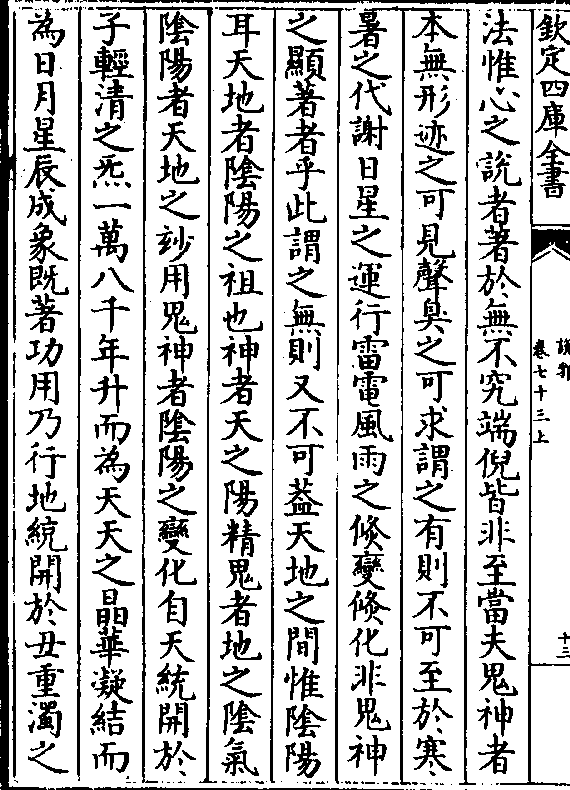 欽定四庫全書
說郛
卷七十三上
十三
法惟心之說者著於無不究端倪皆非至當夫鬼神者
本無形迹之可見聲臭之可求謂之有則不可至於寒
暑之代謝日星之運行雷電風雨之倐變倐化非鬼神
之顯著者乎此謂之無則又不可葢天地之間惟陰陽
耳天地者陰陽之祖也神者天之陽精鬼者地之陰氣
陰陽者天地之玅用鬼神者陰陽之變化自天統開於
子輕清之炁一萬八千年升而為天天之晶華凝結而
為日月星辰成象既著功用乃行地統開於丑重濁之